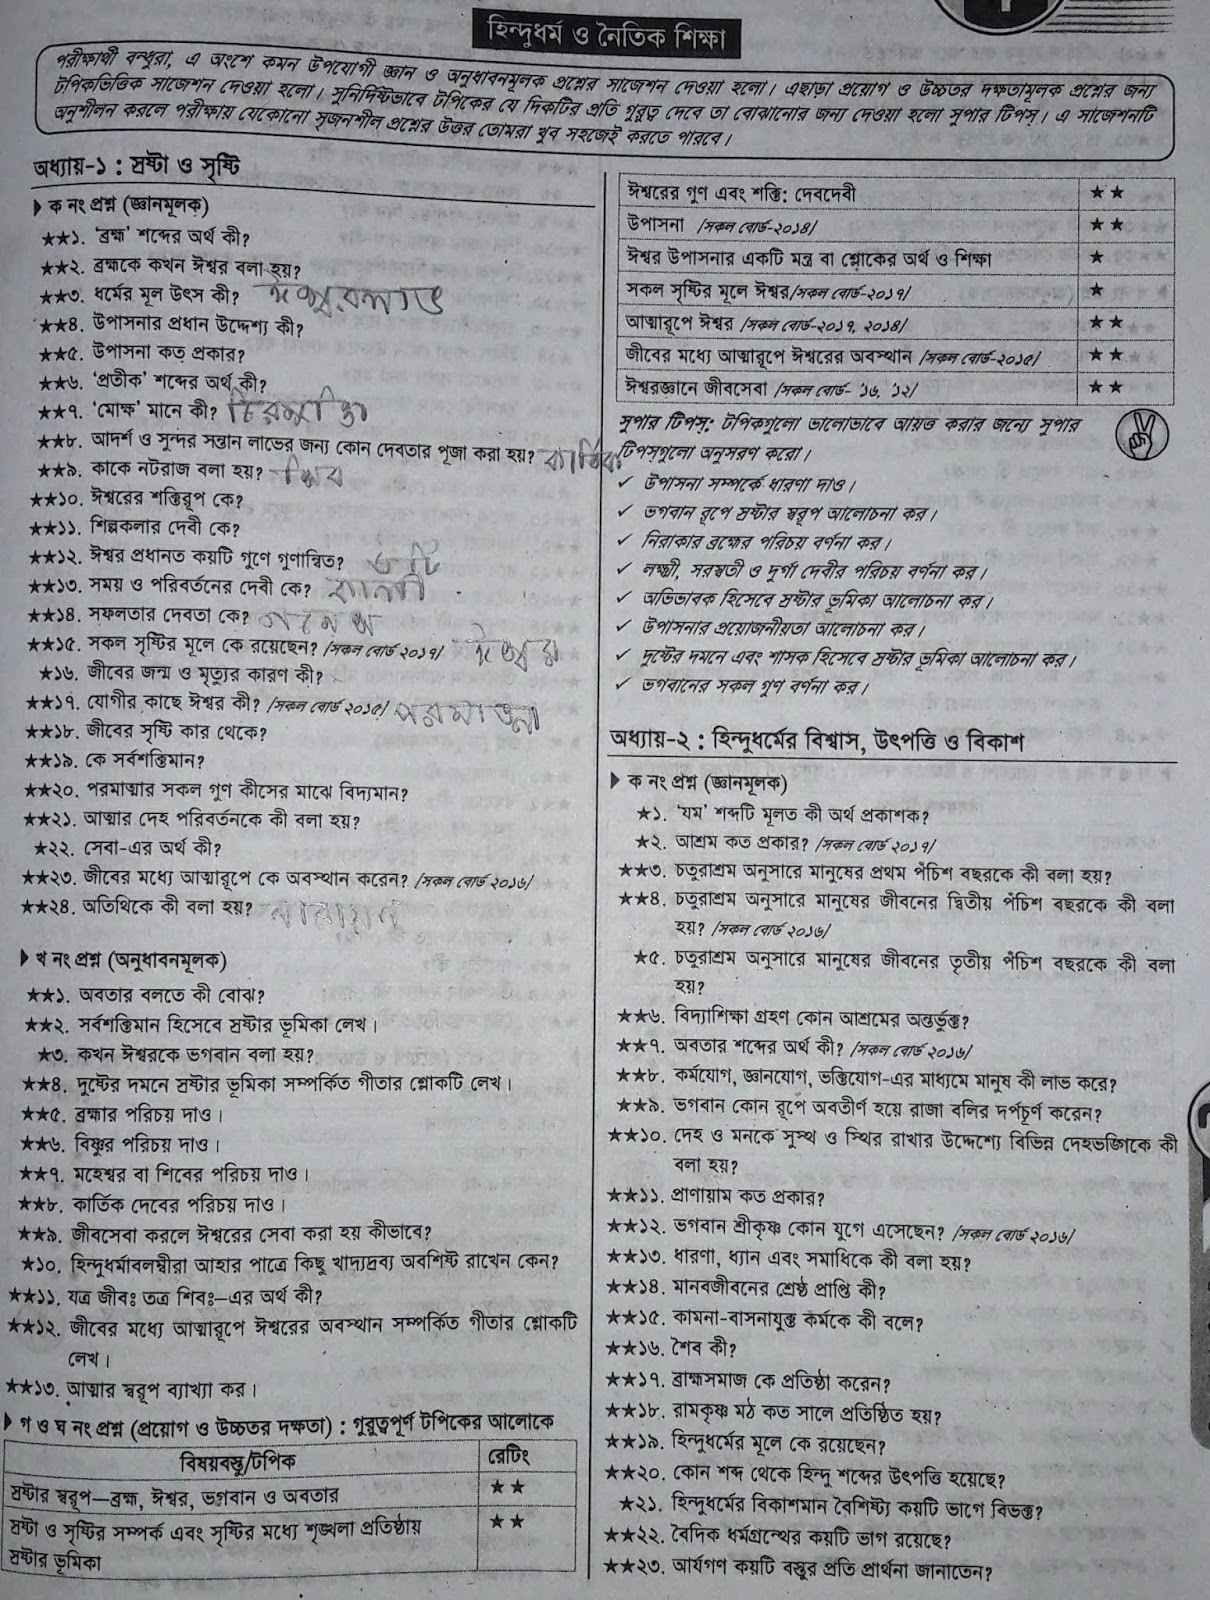 হিন্দুধর্ম ও নৈতিক শিক্ষা
পরীক্ষার্থী বন্ধুরা, এ অংশে কমন উপযোগী জ্ঞান ও অনুধাবনমূলক প্রশ্নের সাজেশন দেওয়া হলো। এছাড়া প্রয়োগ ও উচ্চতর দক্ষতামূলক প্রশ্নের জন্য
টপিকভিত্তিক সাজেশন দেওয়া হলো। সুনির্দিষ্টভাবে টপিকের যে দিকটির প্রতি গুরুত্ব দেবে তা বোঝানোর জন্য দেওয়া হলো সুপার টিপস্। এ সাজেশনটি
অনুশীলন করলে পরীক্ষায় যেকোনো সৃজনশীল প্রশ্নের উত্তর তোমরা খুব সহজেই করতে পারবে।
অধ্যায়-১ : স্রষ্টা ও সৃষ্টি
ক নং প্রশ্ন (জ্ঞানমূলক)
★★১. ‘ব্রহ্ম’ শব্দের অর্থ কী?
★★২. ব্রহ্মকে কখন ঈশ্বর বলা হয়?
★★৩. ধর্মের মূল উৎস কী?
★★৪. উপাসনার প্রধান উদ্দেশ্য কী?
★★৫. উপাসনা কত প্রকার?
★★৬. ‘প্রতীক’ শব্দের অর্থ কী?
★★৭. ‘মোক্ষ’ মানে কী? চিরমুক্তি
★★৮. আদর্শ ও সুন্দর সন্তান লাভের জন্য কোন দেবতার পূজা করা হয়? কার্তিক
★★৯. কাকে নটরাজ বলা হয়? শিব
★★১০. ঈশ্বরের শক্তিরূপ কে?
★★১১. শিল্পকলার দেবী কে?
★★১২. ঈশ্বর প্রধানত কয়টি গুণে গুণান্বিত? ৬টি
★★১৩. সময় ও পরিবর্তনের দেবী কে? কালী
★★১৪. সফলতার দেবতা কে? গনেশ
★★১৫. সকল সৃষ্টির মূলে কে রয়েছেন? [সকল বোর্ড ২০১৭] ঈশ্বর
★১৬. জীবের জন্ম ও মৃত্যুর কারণ কী?
★★১৭. যোগীর কাছে ঈশ্বর কী? [সকল বোর্ড ২০১৫] পরমাত্মা
★★১৮. জীবের সৃষ্টি কার থেকে?
★★১৯. কে সর্বশক্তিমান?
★★২০. পরমাত্মার সকল গুণ কীসের মাঝে বিদ্যমান?
★★২১. আত্মার দেহ পরিবর্তনকে কী বলা হয়?
★২২. সেবা-এর অর্থ কী?
★★২৩. জীবের মধ্যে আত্মারূপে কে অবস্থান করেন? [সকল বোর্ড ২০১৬]
★★২৪. অতিথিকে কী বলা হয়? নারায়ণ
খ নং প্রশ্ন (অনুধাবনমূলক)
★★১. অবতার বলতে কী বোঝ?
★★২. সর্বশক্তিমান হিসেবে স্রষ্টার ভূমিকা লেখ।
★৩. কখন ঈশ্বরকে ভগবান বলা হয়?
★★৪. দুষ্টের দমনে স্রষ্টার ভূমিকা সম্পর্কিত গীতার শ্লোকটি লেখ।
★★৫. ব্রহ্মার পরিচয় দাও।
★★৬. বিষ্ণুর পরিচয় দাও।
★★৭. মহেশ্বর বা শিবের পরিচয় দাও।
★★৮. কার্তিক দেবের পরিচয় দাও।
★★৯. জীবসেবা করলে ঈশ্বরের সেবা করা হয় কীভাবে?
★১০. হিন্দুধর্মাবলম্বীরা আহার পাত্রে কিছু খাদ্যদ্রব্য অবশিষ্ট রাখেন কেন?
★★১১. যত্র জীবঃ তত্র শিবঃ—এর অর্থ কী?
★★১২. জীবের মধ্যে আত্মারূপে ঈশ্বরের অবস্থান সম্পর্কিত গীতার শ্লোকটি
লেখ।
★★১৩. আত্মার স্বরূপ ব্যাখ্যা কর।
গ ও ঘ নং প্রশ্ন (প্রয়োগ ও উচ্চতর দক্ষতা) : গুরুত্বপূর্ণ টপিকের আলোকে
বিষয়বস্তু/টপিক রেটিং
স্রষ্টার স্বরূপ—ব্রহ্ম, ঈশ্বর, ভগবান ও অবতার ★★
স্রষ্টা ও সৃষ্টির সম্পর্ক এবং সৃষ্টির মধ্যে শৃঙ্খলা প্রতিষ্ঠায় ★★
স্রষ্টার ভূমিকা
ঈশ্বরের গুণ এবং শক্তি: দেবদেবী ★★
উপাসনা [সকল বোর্ড-২০১৪] ★★
ঈশ্বর উপাসনার একটি মন্ত্র বা শ্লোকের অর্থ ও শিক্ষা ★
সকল সৃষ্টির মূলে ঈশ্বর[সকল বোর্ড-২০১৭] ★
আত্মারূপে ঈশ্বর [সকল বোর্ড-২০১৭, ২০১৪] ★★
জীবের মধ্যে আত্মারূপে ঈশ্বরের অবস্থান [সকল বোর্ড-২০১৫] ★★
ঈশ্বরজ্ঞানে জীবসেবা [সকল বোর্ড- '১৬, '১২] ★★
সুপার টিপস্: টপিকগুলো ভালোভাবে আয়ত্ত করার জন্যে সুপার
টিপস্‌গুলো অনুসরণ করো।
✓ উপাসনা সম্পর্কে ধারণা দাও।
✓ ভগবান রূপে স্রষ্টার স্বরূপ আলোচনা কর।
✓ নিরাকার ব্রহ্মের পরিচয় বর্ণনা কর।
✓ লক্ষ্মী, সরস্বতী ও দুর্গা দেবীর পরিচয় বর্ণনা কর।
✓ অভিভাবক হিসেবে স্রষ্টার ভূমিকা আলোচনা কর।
✓ উপাসনার প্রয়োজনীয়তা আলোচনা কর।
✓ দুষ্টের দমনে এবং শাসক হিসেবে স্রষ্টার ভূমিকা আলোচনা কর।
✓ ভগবানের সকল গুণ বর্ণনা কর।
অধ্যায়-২ : হিন্দুধর্মের বিশ্বাস, উৎপত্তি ও বিকাশ
ক নং প্রশ্ন (জ্ঞানমূলক)
★১. ‘যম’ শব্দটি মূলত কী অর্থ প্রকাশক?
★২. আশ্রম কত প্রকার? [সকল বোর্ড ২০১৭]
★★৩. চতুরাশ্রম অনুসারে মানুষের প্রথম পঁচিশ বছরকে কী বলা হয়?
★★৪. চতুরাশ্রম অনুসারে মানুষের জীবনের দ্বিতীয় পঁচিশ বছরকে কী বলা
হয়? [সকল বোর্ড ২০১৬]
★৫. চতুরাশ্রম অনুসারে মানুষের জীবনের তৃতীয় পঁচিশ বছরকে কী বলা
হয়?
★★৬. বিদ্যাশিক্ষা গ্রহণ কোন আশ্রমের অন্তর্ভুক্ত?
★★৭. অবতার শব্দের অর্থ কী? [সকল বোর্ড ২০১৬]
★★৮. কর্মযোগ, জ্ঞানযোগ, ভক্তিযোগ-এর মাধ্যমে মানুষ কী লাভ করে?
★★৯. ভগবান কোন রূপে অবতীর্ণ হয়ে রাজা বলির দর্পচূর্ণ করেন?
★★১০. দেহ ও মনকে সুস্থ ও স্থির রাখার উদ্দেশ্যে বিভিন্ন দেহভঙ্গিকে কী
বলা হয়?
★★১১. প্রাণায়াম কত প্রকার?
★★১২. ভগবান শ্রীকৃষ্ণ কোন যুগে এসেছেন? [সকল বোর্ড ২০১৬]
★★১৩. ধারণা, ধ্যান এবং সমাধিকে কী বলা হয়?
★★১৪. মানবজীবনের শ্রেষ্ঠ প্রাপ্তি কী?
★★১৫. কামনা-বাসনাযুক্ত কর্মকে কী বলে?
★★১৬. শৈব কী?
★★১৭. ব্রাহ্মসমাজ কে প্রতিষ্ঠা করেন?
★★১৮. রামকৃষ্ণ মঠ কত সালে প্রতিষ্ঠিত হয়?
★★১৯. হিন্দুধর্মের মূলে কে রয়েছেন?
★★২০. কোন শব্দ থেকে হিন্দু শব্দের উৎপত্তি হয়েছে?
★২১. হিন্দুধর্মের বিকাশমান বৈশিষ্ট্য কয়টি ভাগে বিভক্ত?
★★২২. বৈদিক ধর্মগ্রন্থের কয়টি ভাগ রয়েছে?
★★২৩. আর্যগণ কয়টি বস্তুর প্রতি প্রার্থনা জানাতেন?